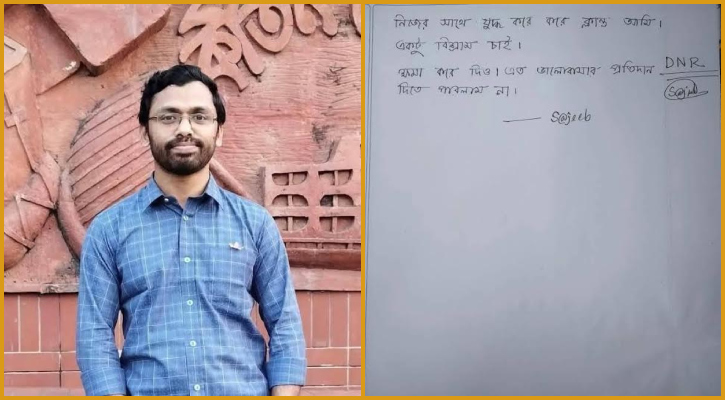 নিজের সাথে যুদ্ধ করে করে ক্লান্ত আমি।
একটু বিশ্রাম চাই।
ক্ষমা করে দিও। এত ভালোবাসার প্রতিদান
দিতে পারলাম না।
— Sajeeb
DNR
Sajeeb